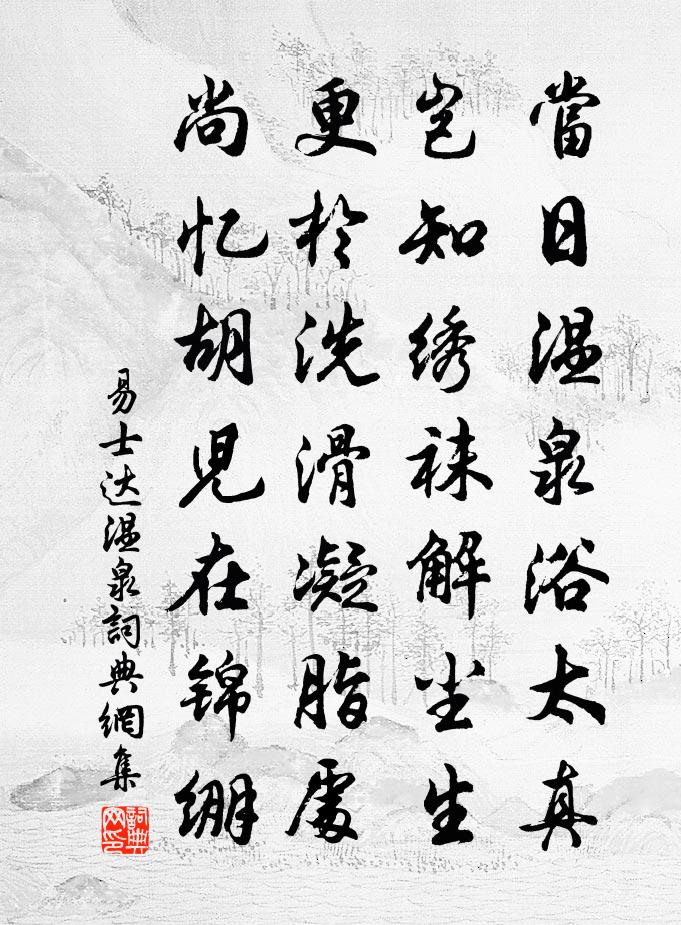 當日温泉浴太真
岂知绣袜解尘生
更於洗滑凝脂處
尚忆胡児在锦绷
易士达温泉詞典網集
詞典网印